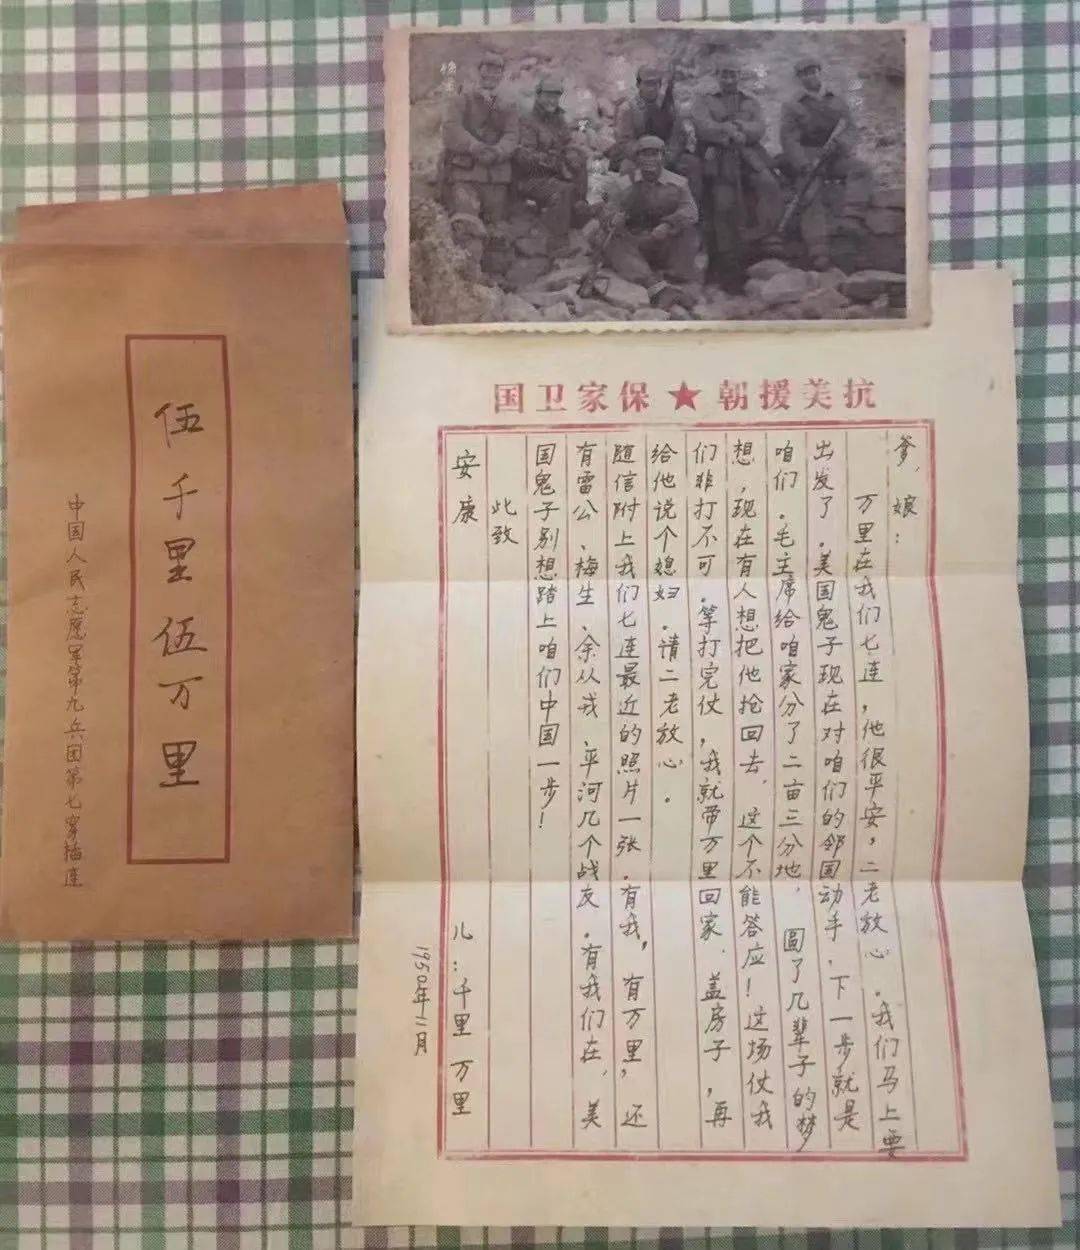 抗美援朝★保家卫国
爹、娘:
万里在我们七连,他很平安,二老放心.我们马上要
出发了.美国鬼子现在对咱们的邻国动手.下一步就是
咱们.毛主席给咱家分了二亩三分地.圆了几辈子的梦
想,现在有人想把他抢回去.这个不能答应!这场仗我
们非打不可.等打完仗,我就带万里回家.盖房子,再
给他说个媳妇.请二老放心.
随信附上我们七连最近的照片一张.有我,有万里,还
有雷公、梅生、余从戎、平河几个战友.有我们在.美
国鬼子别想踏上咱们中国一步!
此致
安康
儿:千里 万里
1950年11月
伍千里伍万里
中国人民志愿军第九兵团第七穿插连